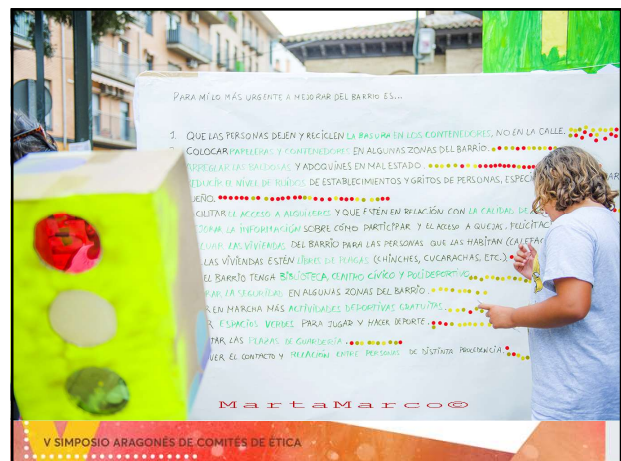 PARA MÍ LO MÁS URGENTE A MEJORAR DEL BARRIO ES...
1. QUE LAS PERSONAS DEJEN Y RECICLEN LA BASURA EN LOS CONTENEDORES, NO EN LA CALLE.
COLOCAR PAPELERAS Y CONTENEDORES EN ALGUNAS ZONAS DEL BARRIO.
ARREGLAR LAS BALDOSAS Y ADOQUINES EN MAL ESTADO.
EL NIVEL DE RUIDOS DE ESTABLECIMIENTOS Y GRITOS DE PERSONAS,
UEÑO.
ILITAR EL ACCESO A ALQUILERES Y QUE ESTÉN EN RELACIÓN CON LA CALIDAD DE
LA INFORMACIÓN SOBRE CÓMO PARTICIPAR Y EL ACCESO A QUEJAS, FELICITAC
LAS VIVIENDAS DEL BARRIO PARA LAS PERSONAS QUE LAS HABITAN (CALEFAC
LAS VIVIENDAS ESTÉN LIBRES DE PLAGAS (CHINCHES, CUCARACHAS, ETC.)
EL BARRIO TENGA BIBLIOTECA, CENTRO CÍVICO Y POLIDEPORTIVO
LA SEGURIDAD EN ALGUNAS ZONAS DEL BARRIO.
R EN MARCHA MÁS ACTIVIDADES DEPORTIVAS GRATUITAS.
R ESPACIOS VERDES PARA JUGAR Y HACER DEPORTE.
TAR LAS PLAZAS DE GUARDERÍA.
VER EL CONTACTO Y RELACIÓN ENTRE PERSONAS DE DISTINTA PROCEDENCIA.
MartaMarco©
V SIMPOSIO ARAGONÉS DE COMITÉS DE ÉTICA